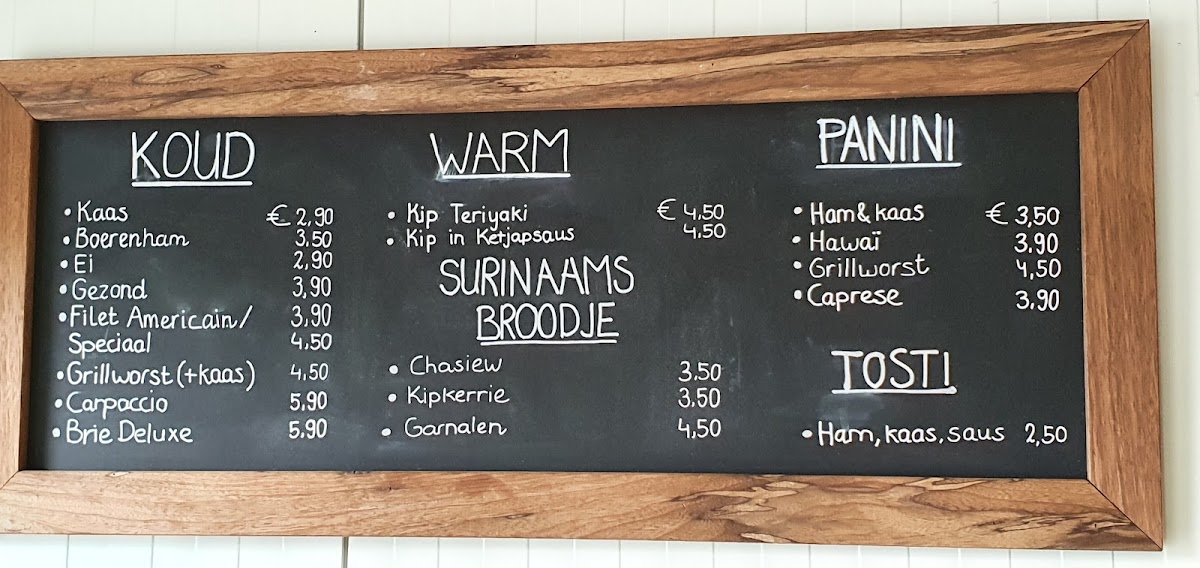 KOUD
• Kaas € 2,90
• Boerenham 3.50
• Ei 2,90
• Gezond 3,90
• Filet Americain/ 3,90
Speciaal 4.50
• Grillworst (+kaas) 4,50
• Carpaccio 5,90
• Brie Deluxe 5.90
WARM
• Kip Teriyaki € 4.50
• Kip in Ketjapsaus 4,50
SURINAAMS
BROODJE
• Chasiew 3.50
• Kipkerrie 3.50
• Garnalen 4,50
PANINI
• Ham & kaas € 3,50
• Hawaï 3.90
• Grillworst 4,50
• Caprese 3.90
TOSTI
• Ham, kaas, saus 2,50